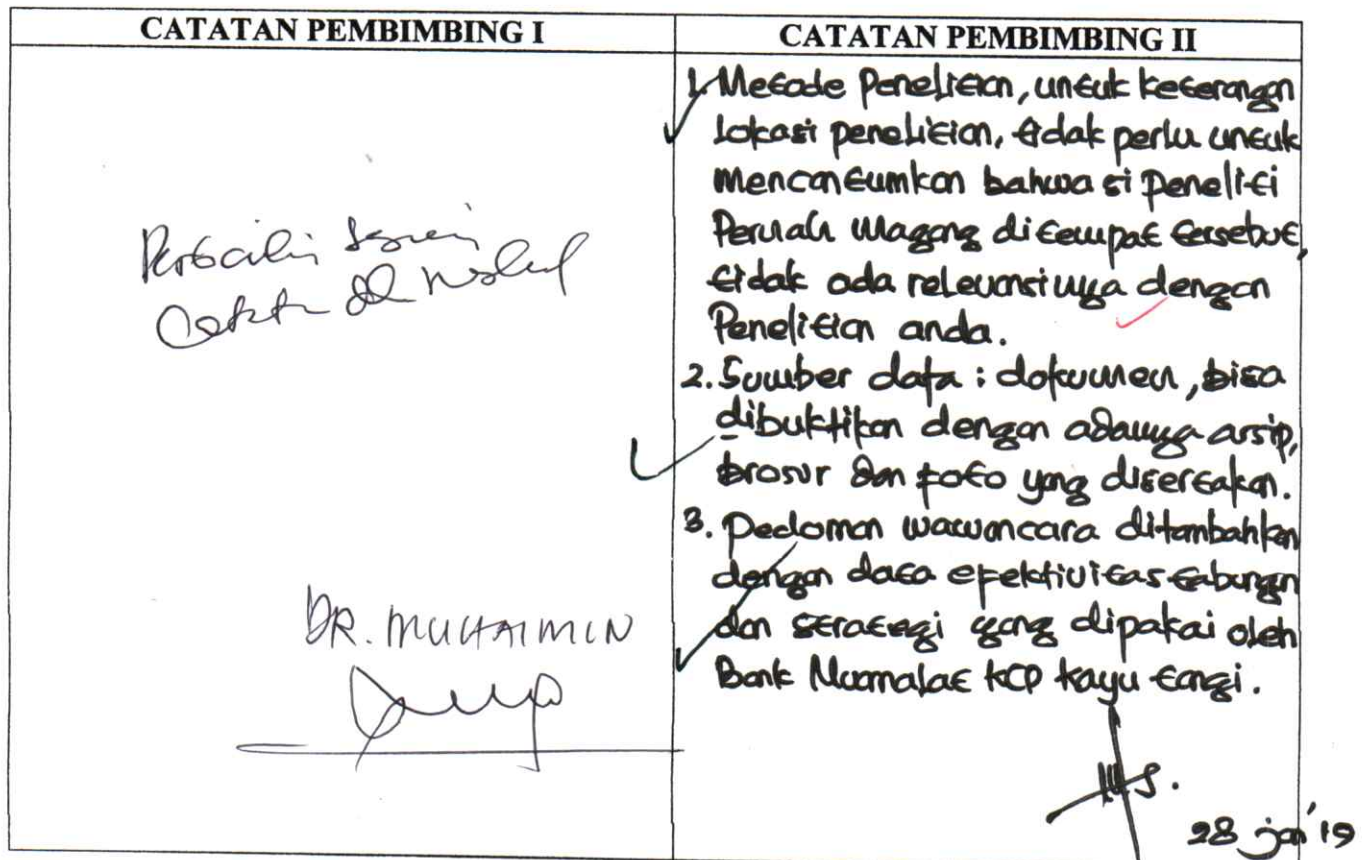 CATATAN PEMBIMBING I
Perbaiki sesuai
DR. MUHAIMIN
CATATAN PEMBIMBING II
1. Metode Penelitian, untuk keterangan
Lokasi penelitian, tidak perlu untuk
Mencantumkan bahwa si peneliti
Pernah Magang di tempat tersebut,
tidak ada relevansinya dengan
Penelitian anda.
2. Sumber data : dokumen, bisa
dibuktikan dengan adanya arsip,
brosur dan foto yang disertakan.
3. Pedoman wawancara ditambahkan
dengan data efektivitas tabungan
dan strategi yang dipakai oleh
Bank Muamalat KCP Kayu tangi.
28 jan '19